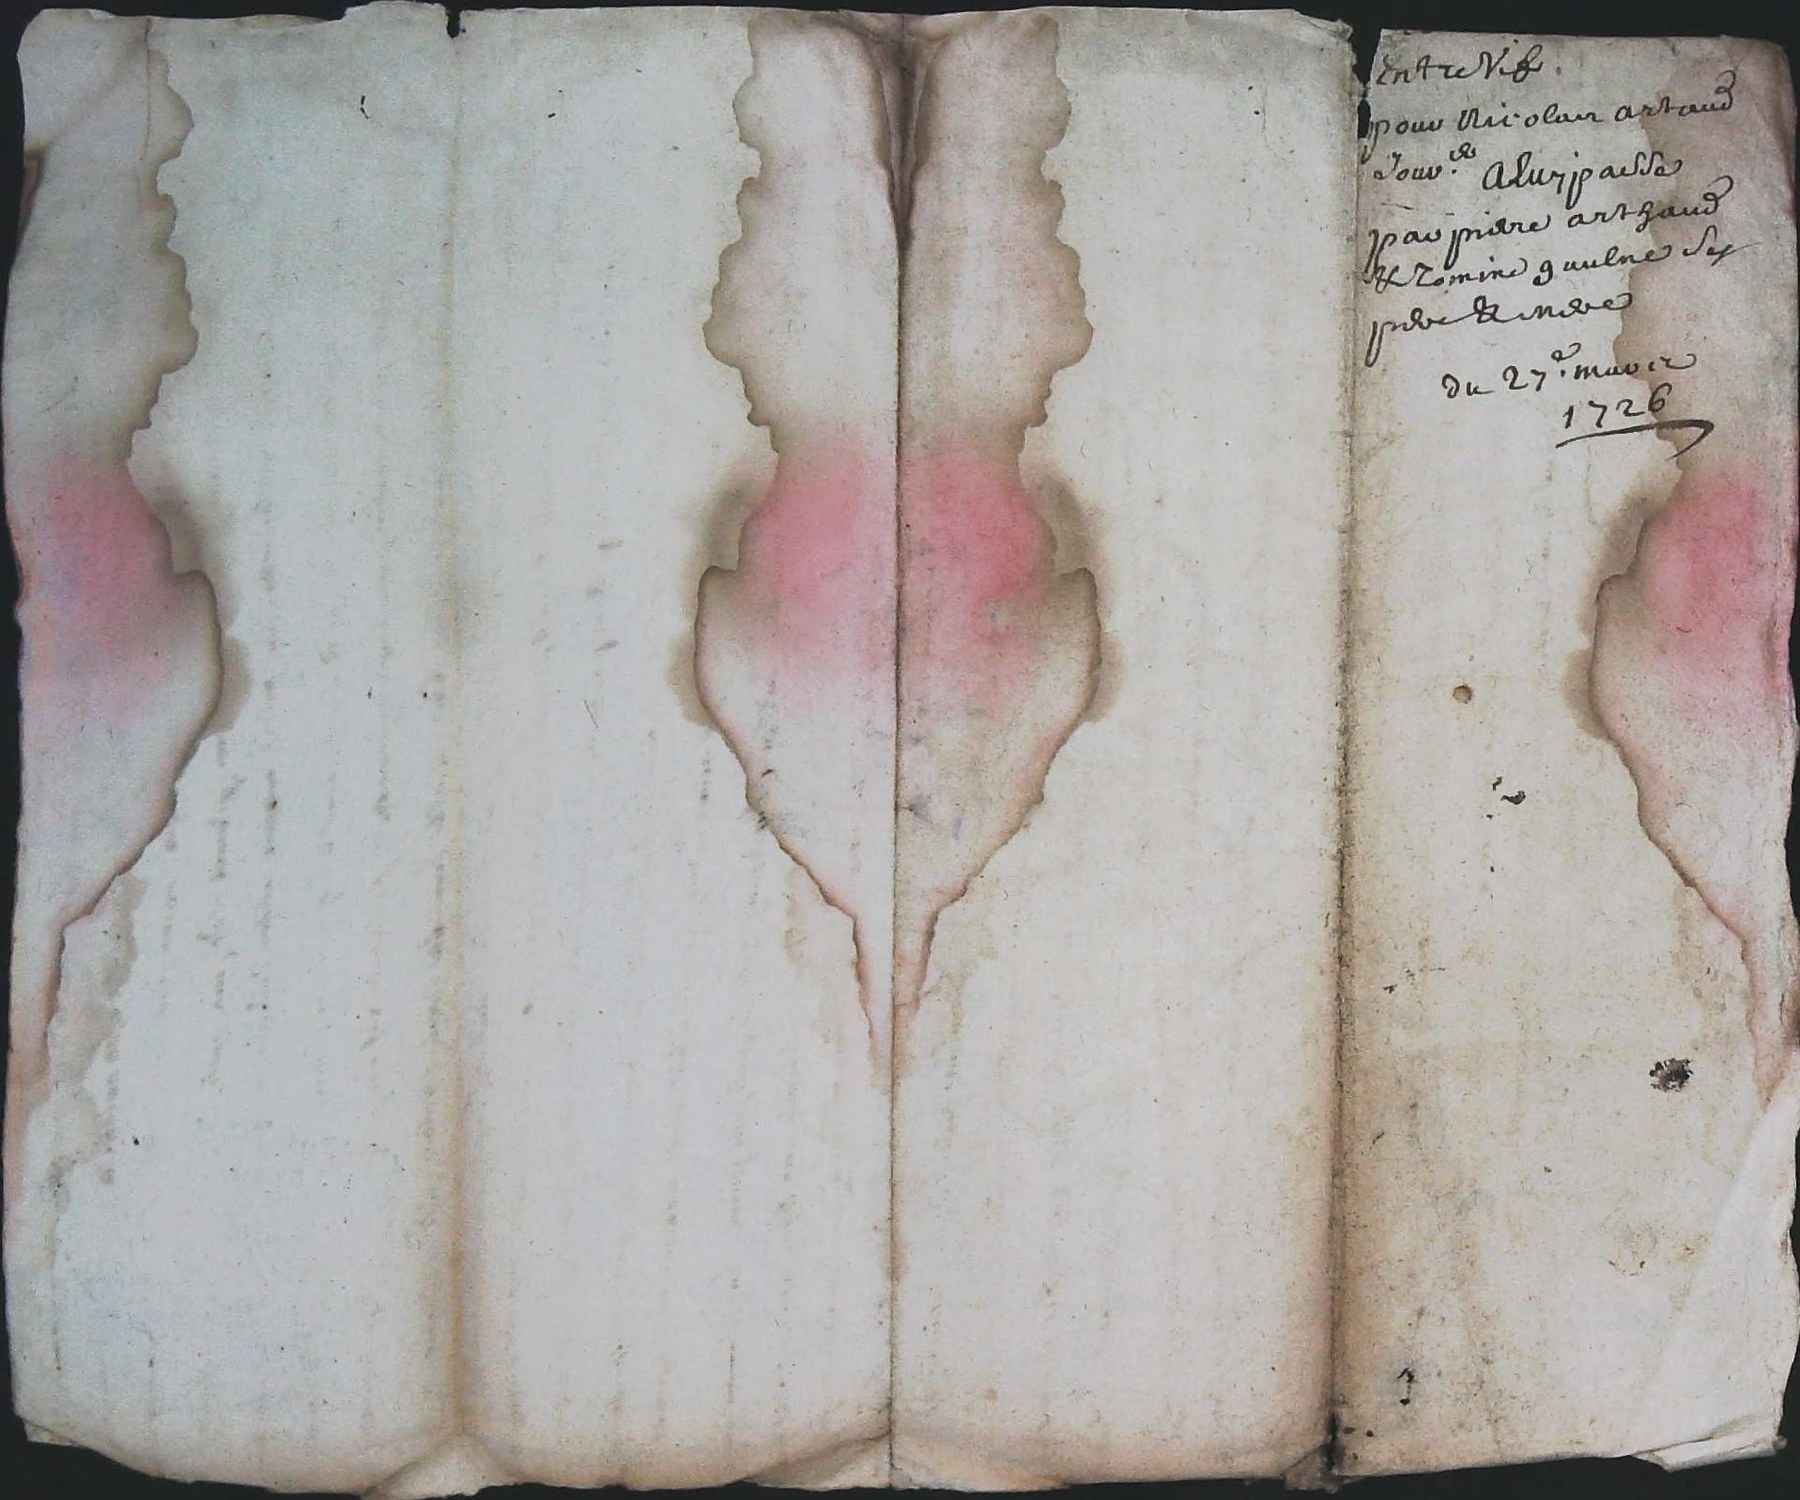 Entre Vifz
pour Nicolas artaud
Jouv.
A Luy passé
par pierre arthaud
& Romine gaulne ses
pere & mere
du 27e mars
1726